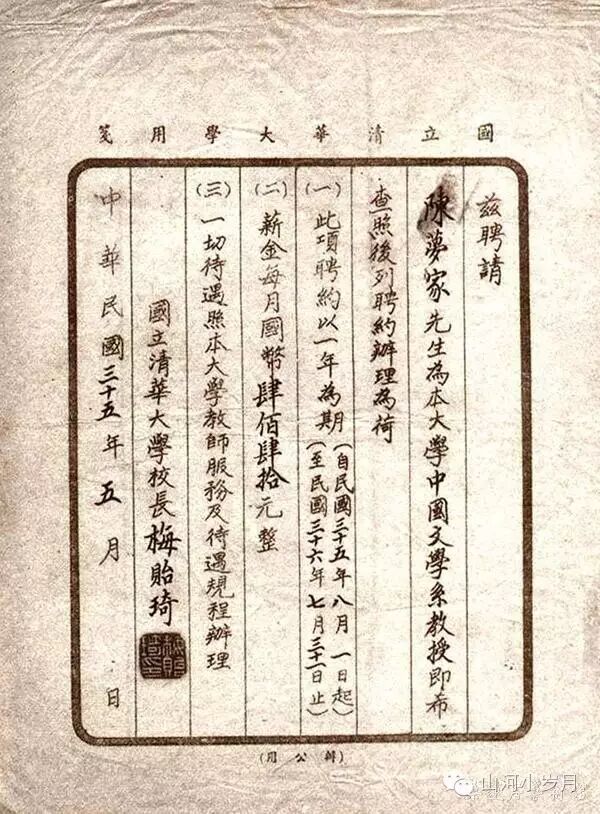 國立清華大學用箋
茲聘請
陳夢家先生為本大學中國文學系教授即希
查照後列聘約辦理為荷
(一)此項聘約以一年為期(自民國三十五年八月一日起)(至民國三十六年七月三十一日止)
(二)薪金每月國幣肆佰肆拾元整
(三)一切待遇照本大學教師服務及待遇規程辦理
國立清華大學校長梅貽琦
中華民國三十五年五月 日
(辦公用)
山河小岁月